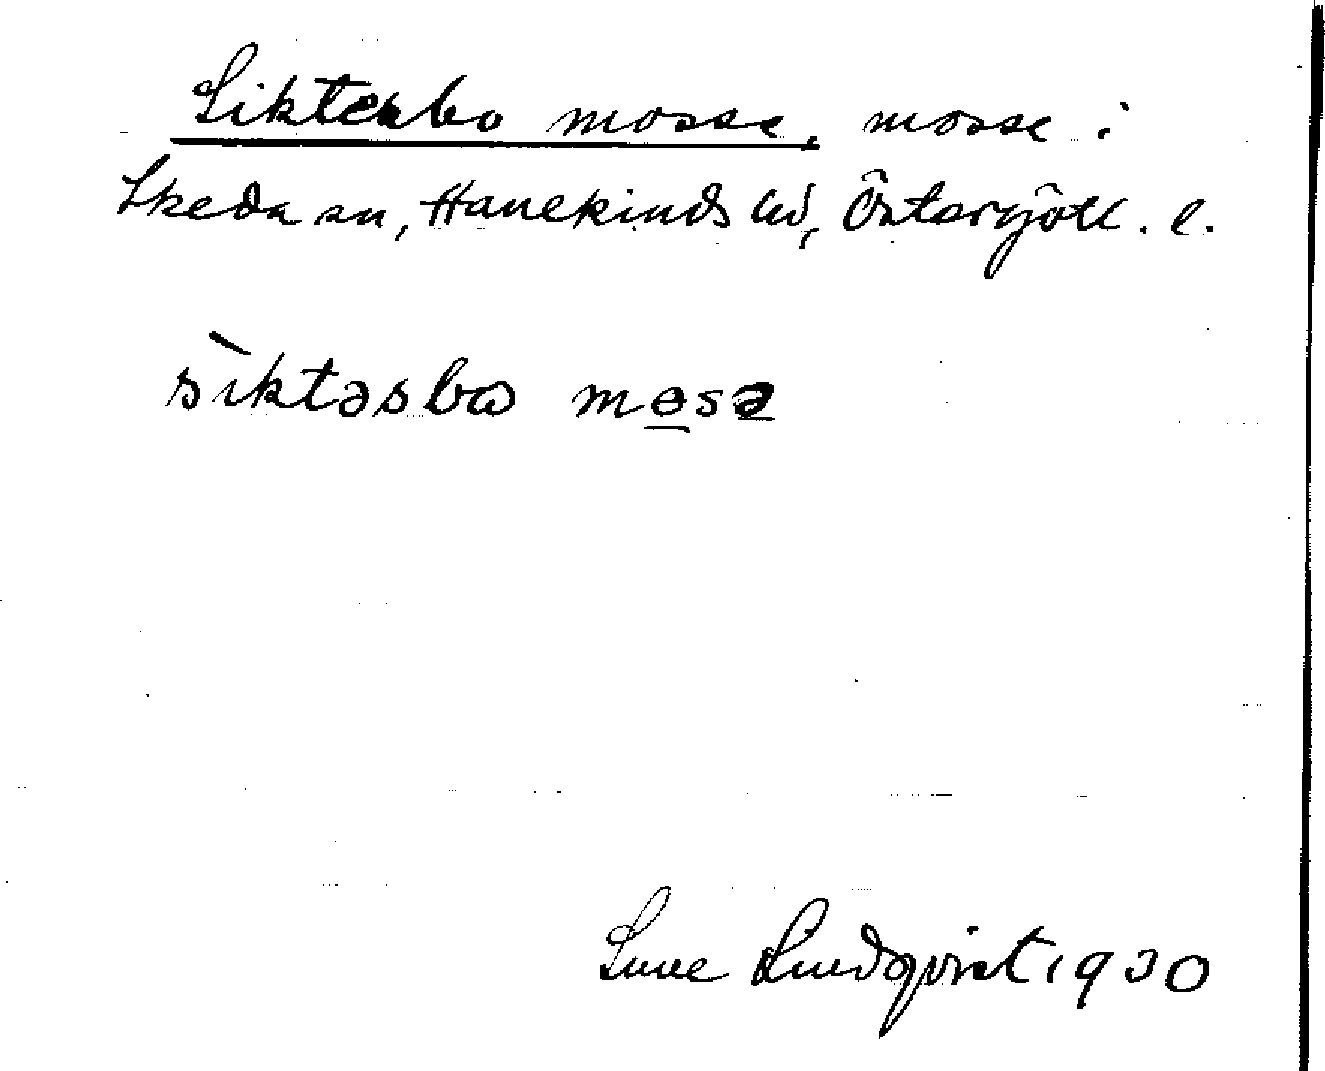 Siktesbo mosse, mosse i
Skeda sn, Hanekinds hd, Östergötl. l.
sìktəsbω mɵsə
Sune Lindqvist 1930